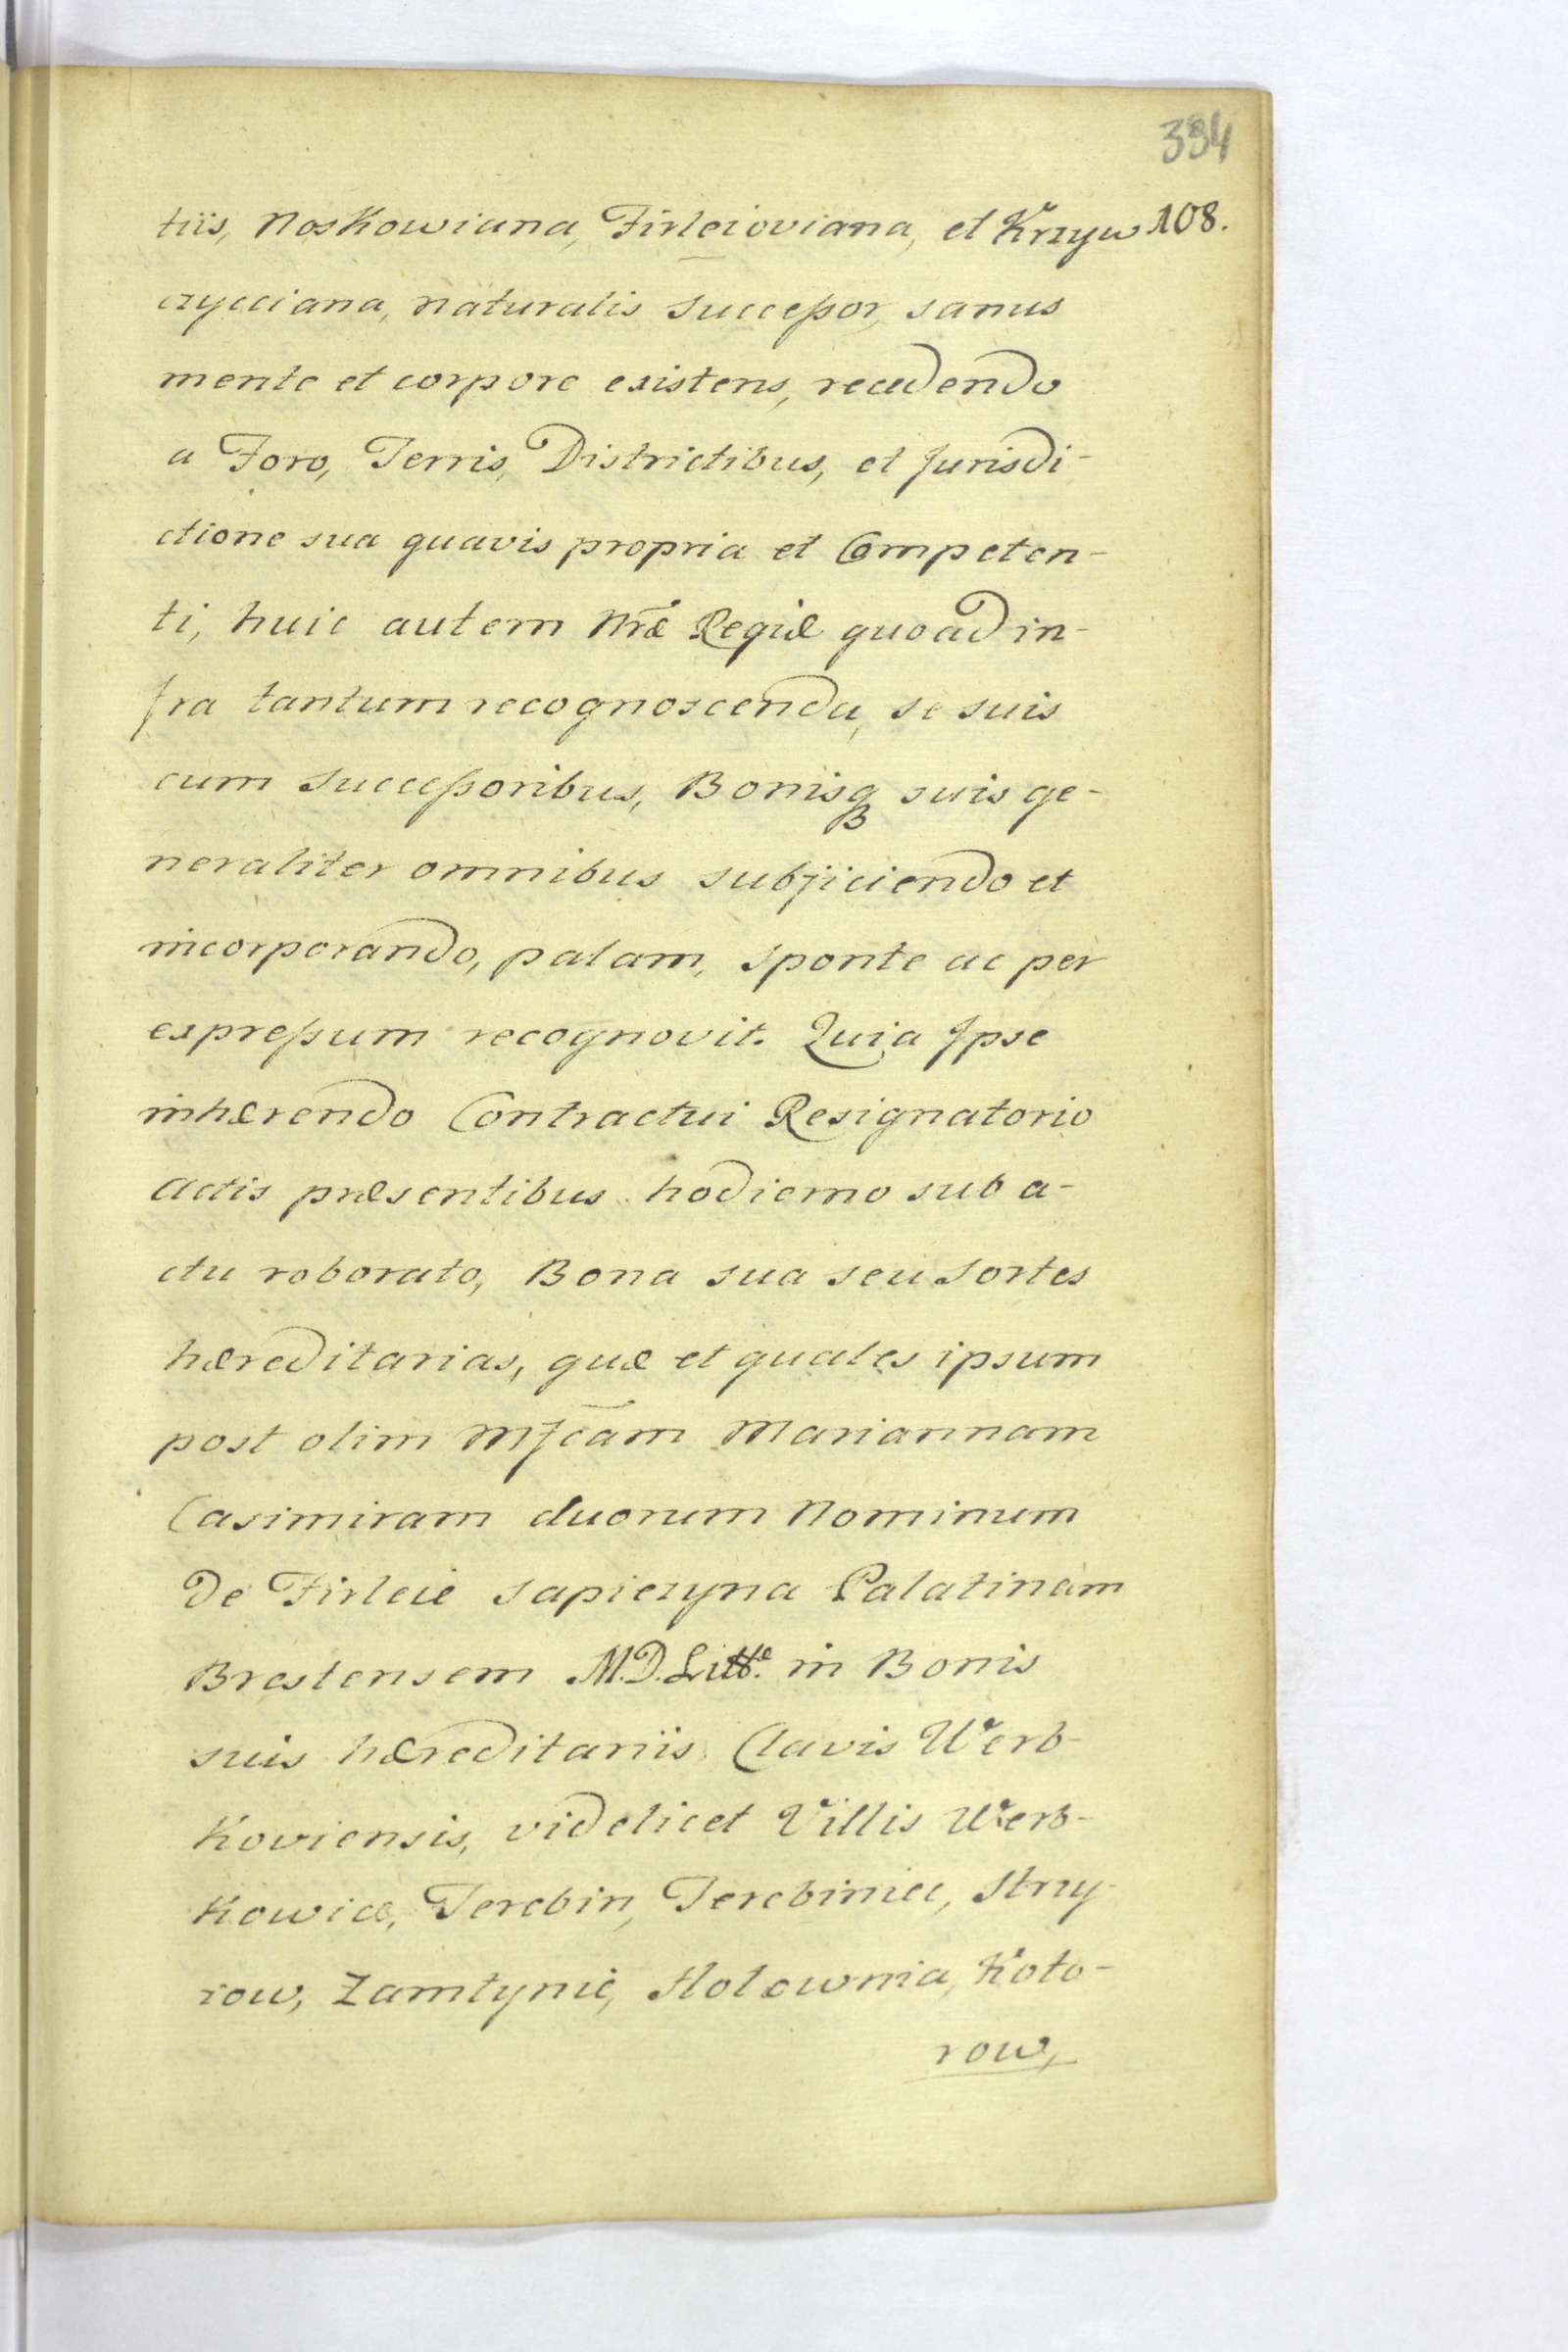 334
tiis, Noskowiana, Firleioviana, et Krzyw 108.
czycciana, naturalis Successor, sanus
mente et corpore existens, recedendo
a Foro, Terris, Districtibus, et Jurisdi-
ctione sua quavis propria et Competen-
ti, huic autem Nræ Regiæ quoad in-
fra tantum recognoscenda, se suis
cum Successoribus, Bonisq suis ge-
neraliter omnibus subjiciendo et
incorporando, palam, sponte ac per
expressum recognovit. Quia Ipse
inhærendo Contractui Resignatorio
Actis præsentibus hodierno sub a-
ctu roborato, Bona sua seu Sortes
hæreditarias, quæ et quales ipsum
post olim Mfcam Mariannam
Casimiram duorum Nominum
De Firleie Sapiezyna Palatinam
Brestensem M.D. Litt. in Bonis
suis hæreditariis Clavis Werb-
koviensis, videlicet Villis Werb-
kowice, Terebin, Terebiniec, Strzy-
zow, Zamtynie, Holownia, Koto-
row,